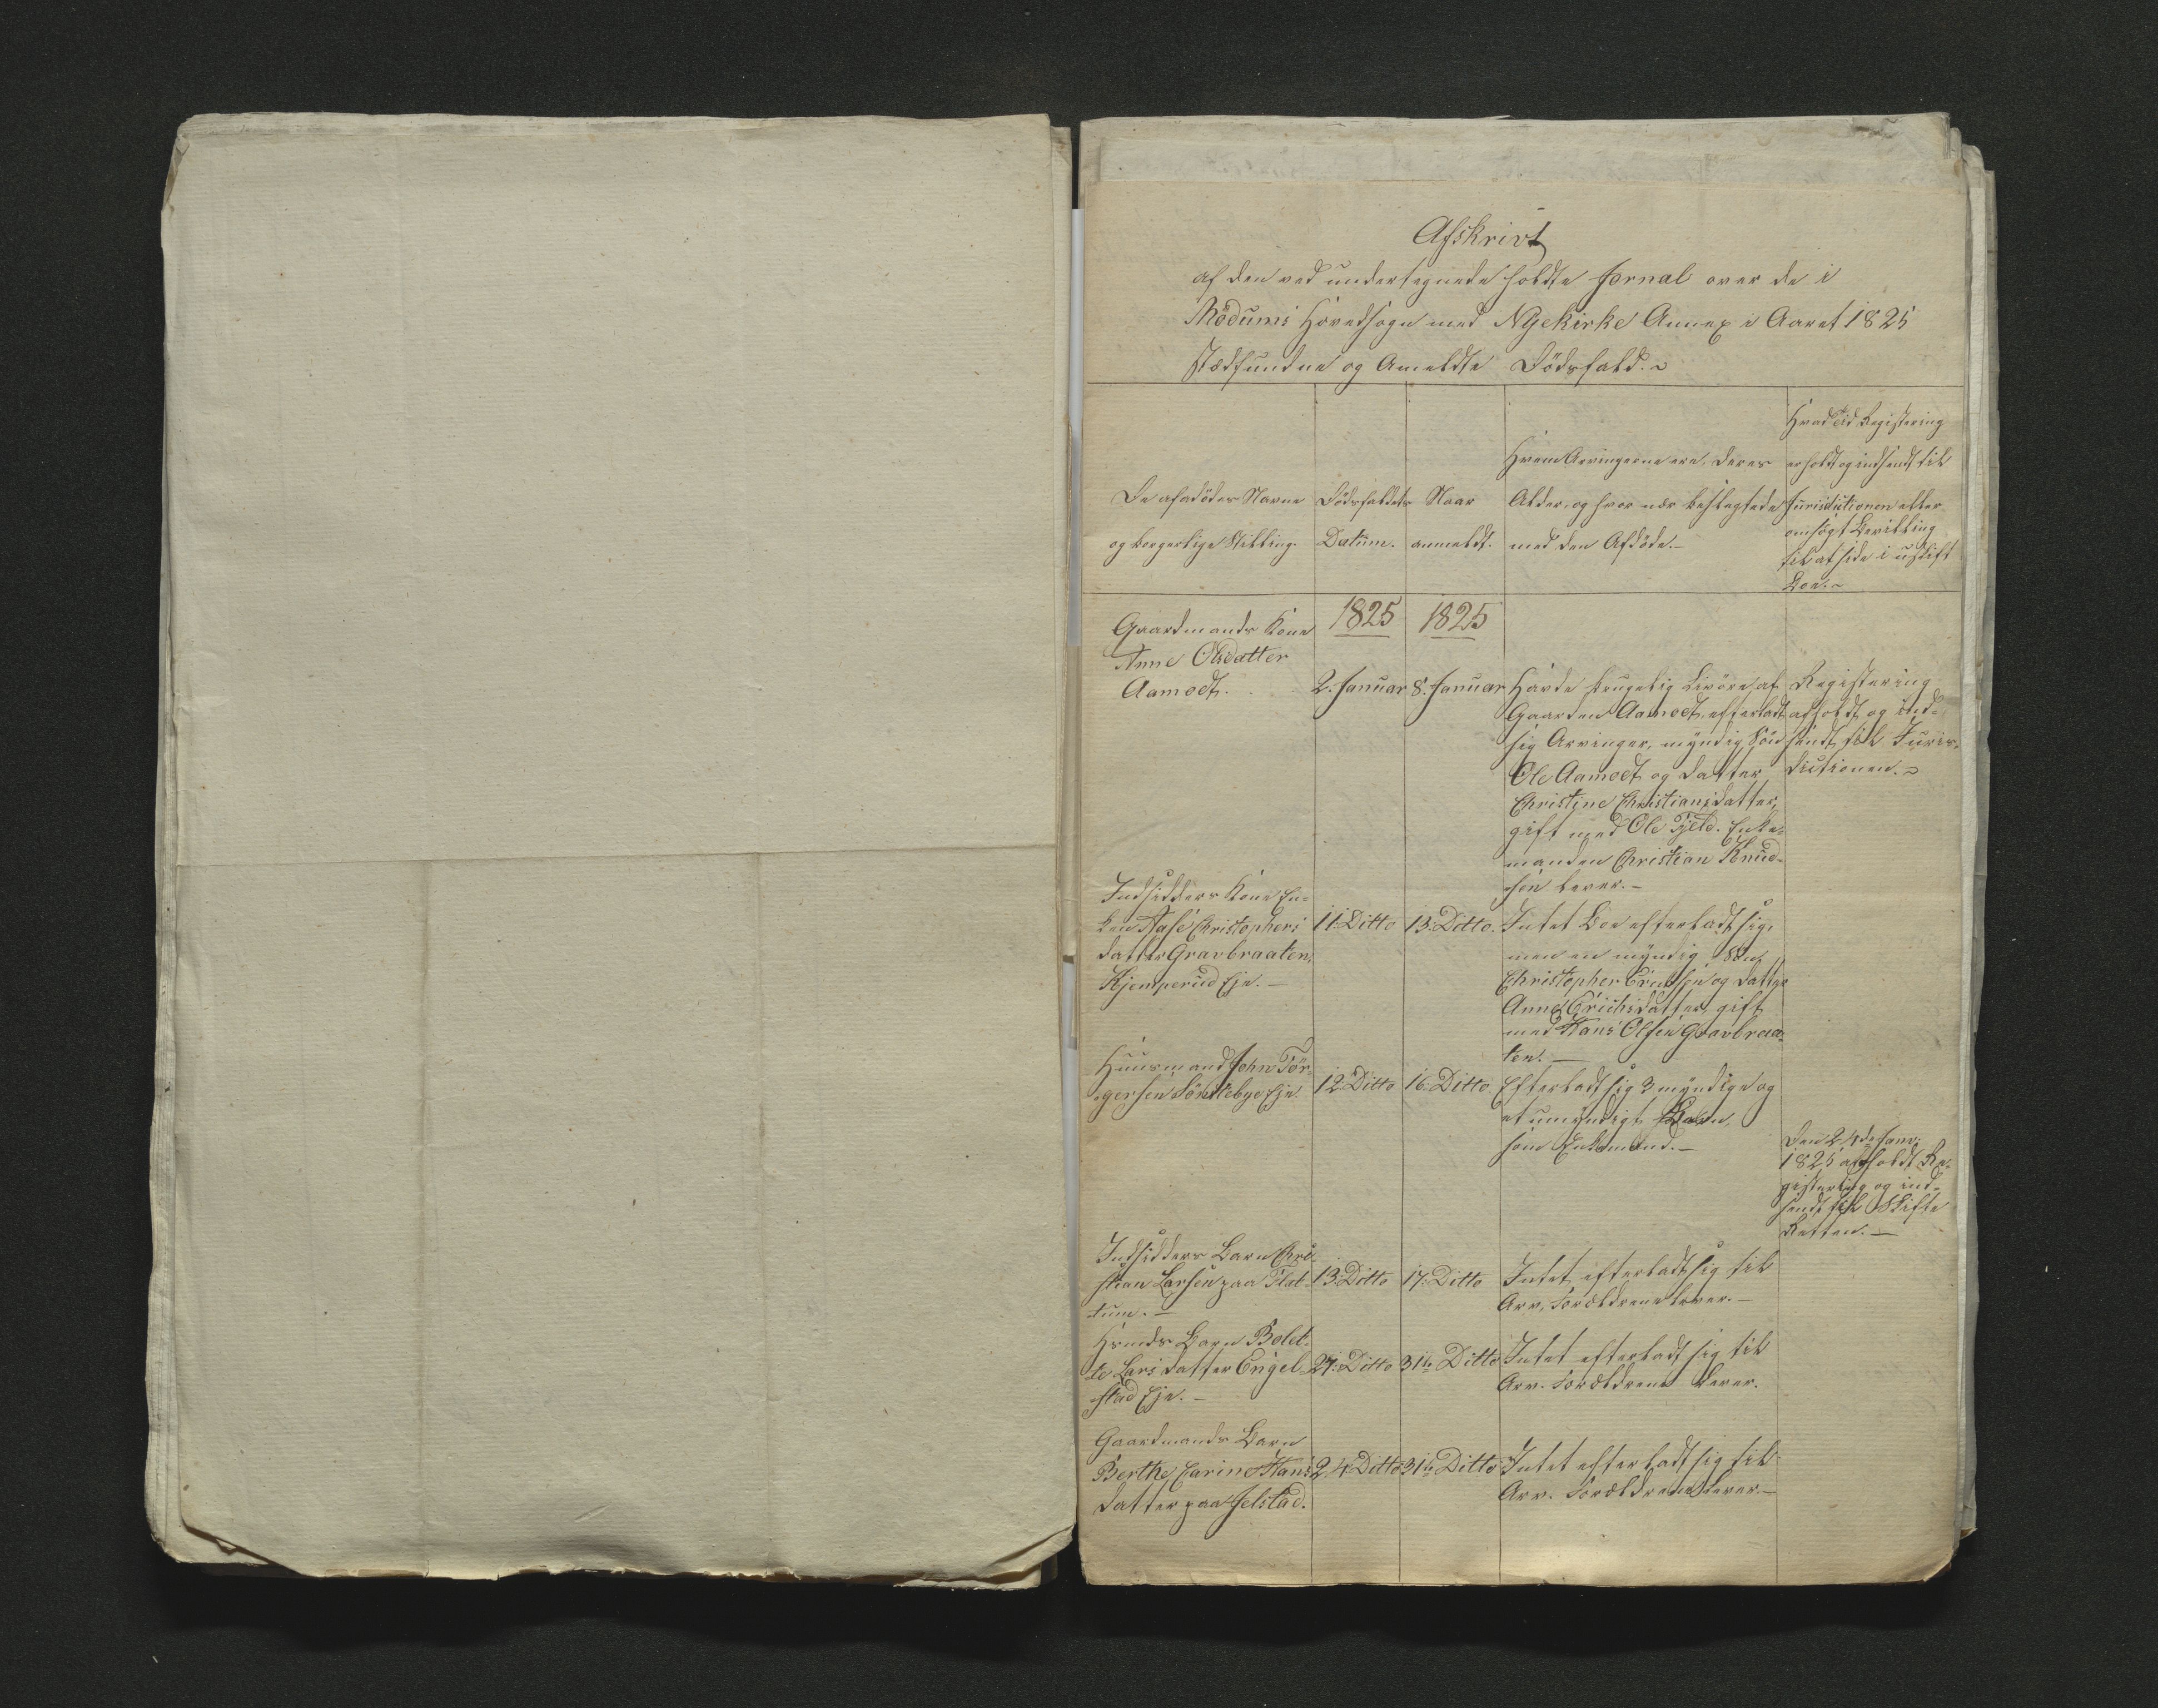 Afskrivt
af den ved undertegnede holdte Jornal over de i
Modums Hovedsogn med Nykirke Annex i Aaret 1825
stedfundne og Anmeldte Dødsfald.
De afdödes Navne
og borgerlige Stilling.
Dödsfaldets
Datum.
Naar
anmeldt.
Hvem Arvingerne ere, deres
Alder, og hvor nær beslægtede
med den Afdöde.
Hvad tid Registering
er holdt og indsendt til
Jurisdictionen eller
omsögt Bevilling
til at side i uskift
Boe.
Gaardmands Kone
Anne Olsdatter
Aamodt.
1825
2. Januar
1825
8. Januar
Havde brugelig Livöre af
Gaarden Aamodt, efterladt
sig Arvinger, myndig Sön
Ole Aamodt og datter
Christine Christiansdatter,
gift med Ole Fjeld. Enke-
manden Christian Knud-
sön lever.
Registering
afholdt og ind-
sendt til Juris-
dictionen.
Indsidders Kone En-
ken Aase Christophers
datter Gravbraaten,
Kjemperud Eje.
11. Ditto
13. Ditto.
Intet Boe efterladt sig,
men en myndig Sön,
Christopher Erichsen og datter
Anne Erichsdatter, gift
med Hans Olsen Gravbraa-
ten.
Huusmand John Tor-
gersen Eje.
12 Ditto
16. Ditto
Efterladt sig 3 myndige og
et umyndigt Barn,
som Enkemand.
Den 24de Janr:
1825 afholdt Re-
gistering og ind-
sendt til Skifte
Retten.
Indsidders Barn Chri-
stian Larsen paa Flat-
tum.
13. Ditto
17. Ditto
Intet efterladt sig til
Arv, Forældrene lever.
Hmds Barn Bolet-
te Larsdatter Engel-
stad Eje.
27. Ditto
31te Ditto
Intet efterladt sig til
Arv. Forældrene lever.
Gaardmands Barn
Berthe Carine Hans
datter paa Jelstad.
24. Ditto
31te Ditto
Intet efterladt sig til
Arv. Forældrene lever.